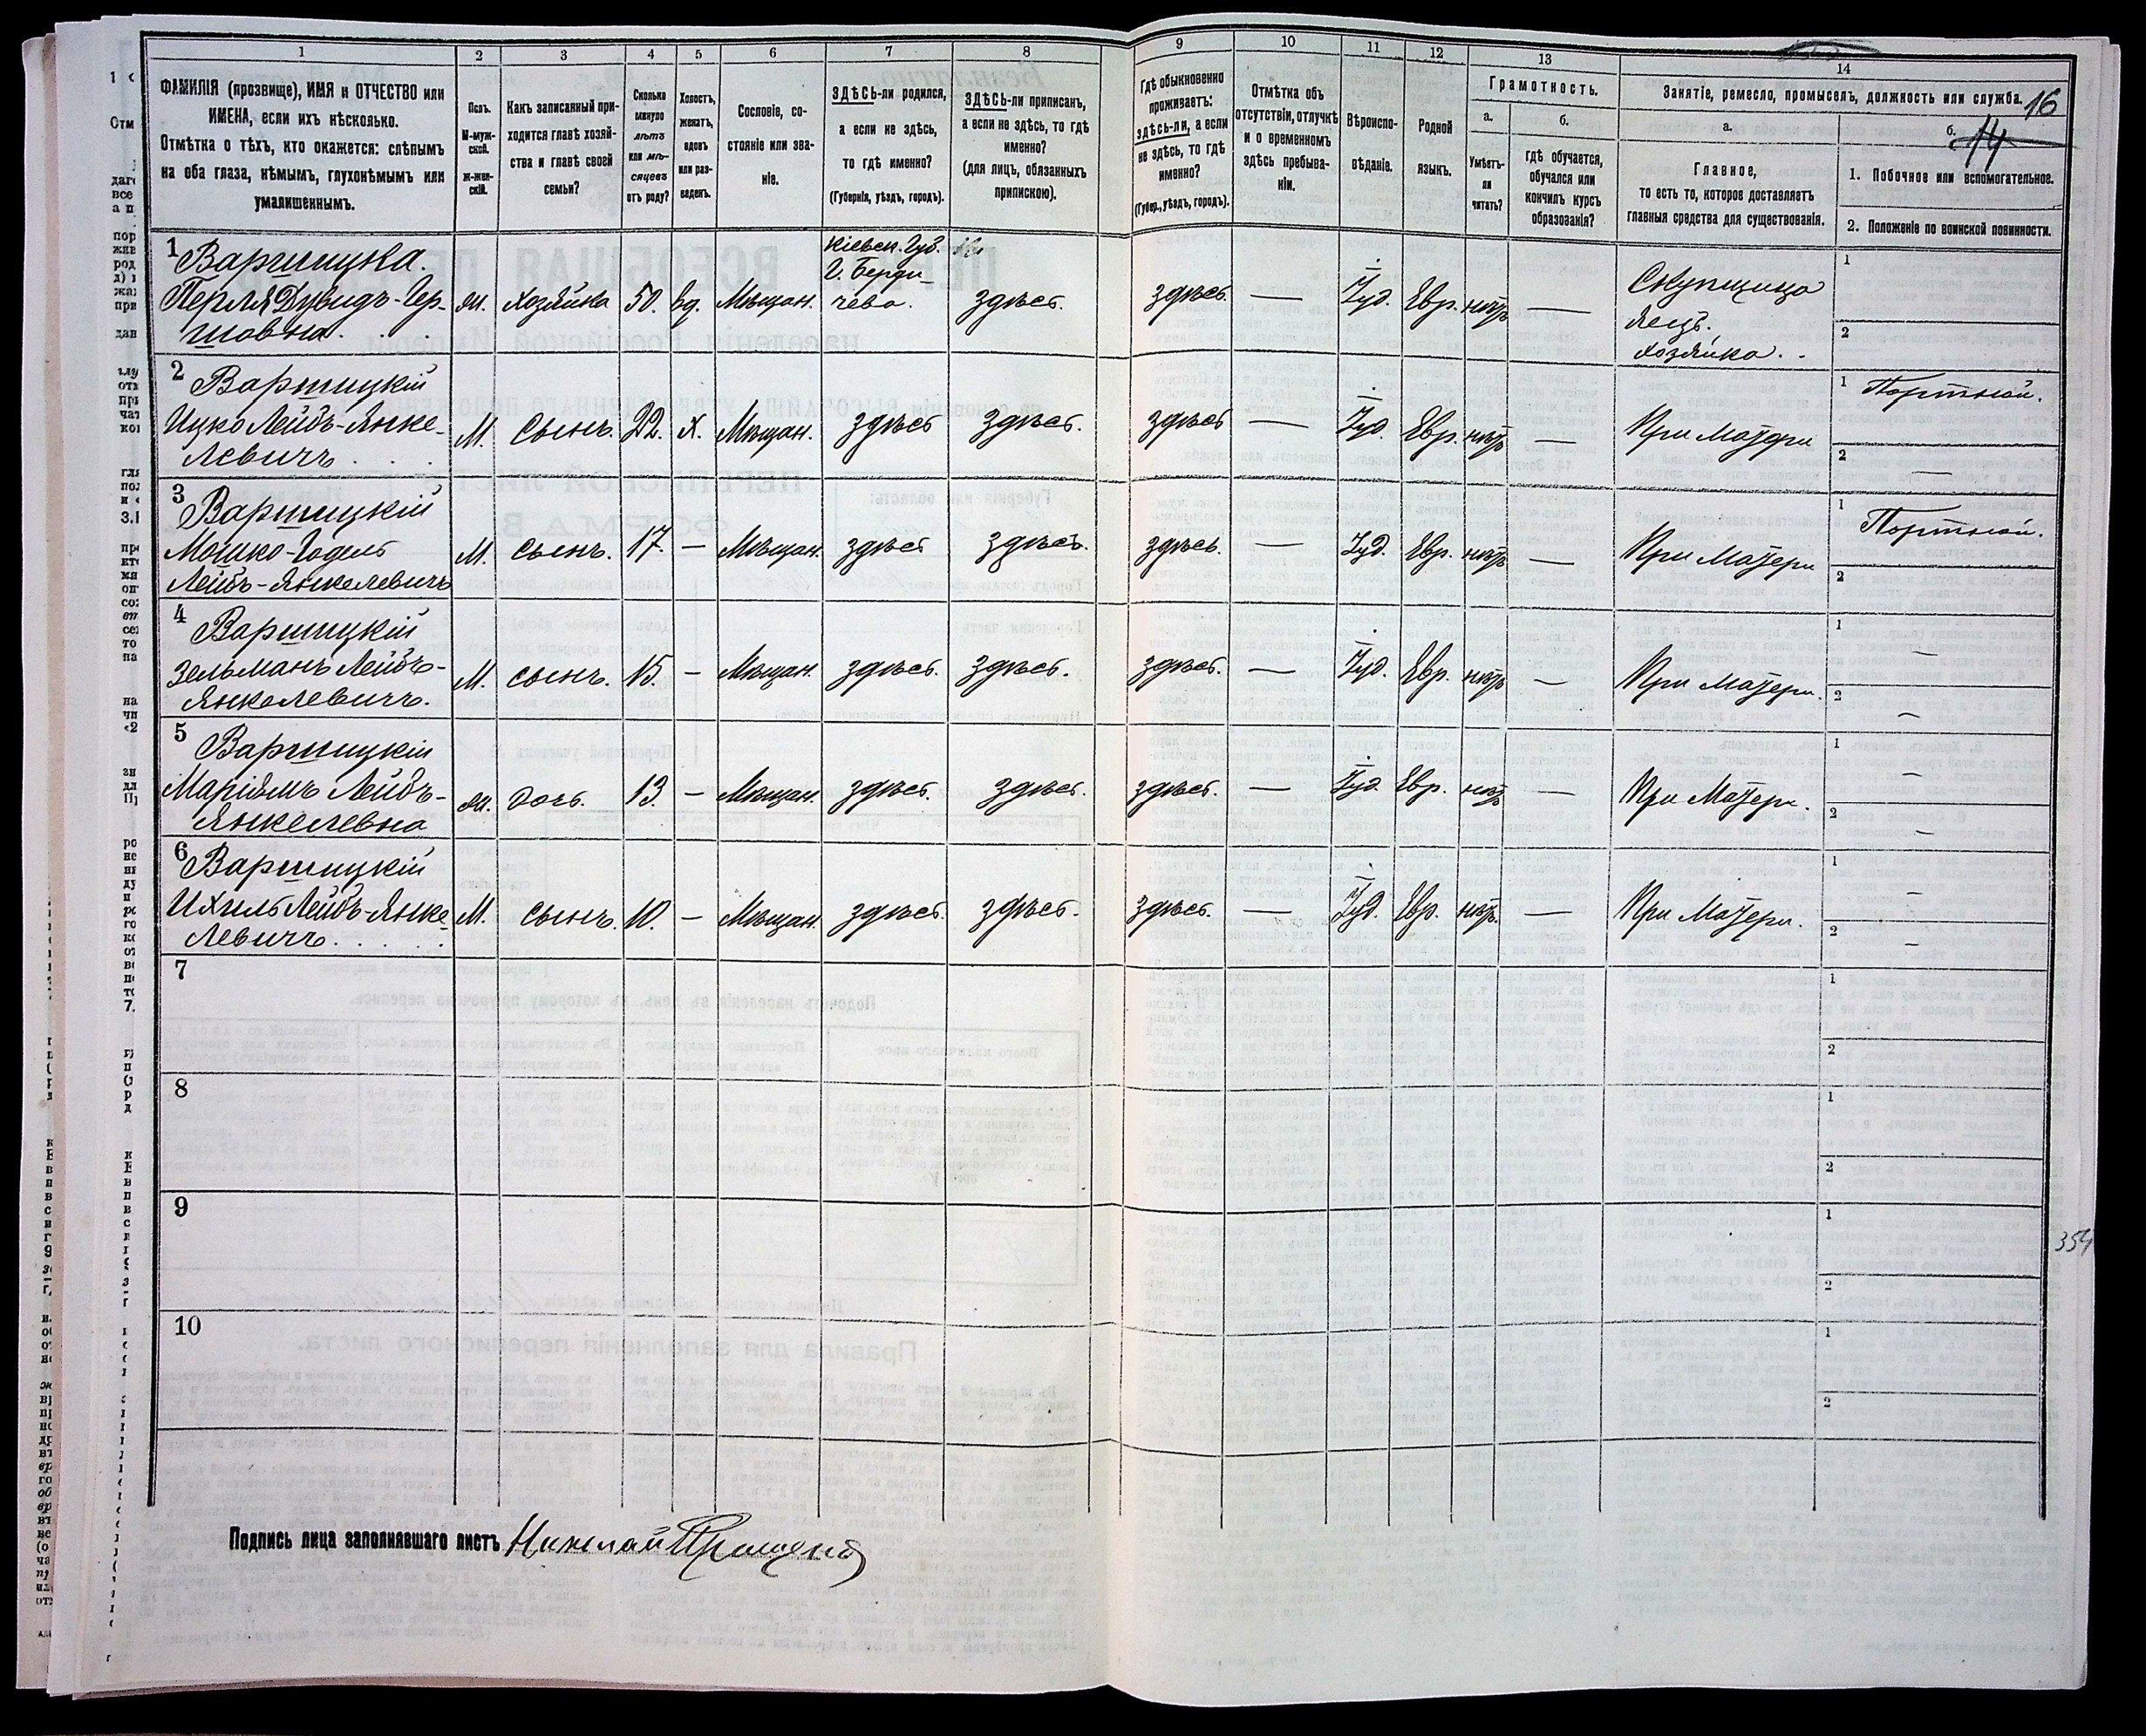 1 2 3 4 5 6 7 8 9 10 11 12 13 14
ФАМИЛІЯ (прозвище), ИМЯ и ОТЧЕСТВО или
ИМЕНА, если ихъ нѣсколько.
Отмѣтка о тѣхъ, кто окажется: слѣпымъ
на оба глаза, нѣмымъ, глухонѣмымъ или
умалишеннымъ.
Полъ.
М-муж-
ской.
ж-жен-
скій.
Какъ записанный при-
ходится главѣ хозяй-
ства и главѣ своей
семьи?
Сколько
минуло
лѣтъ
или мѣ-
сяцевъ
отъ роду?
Холостъ,
женатъ,
вдовъ
или раз-
веденъ.
Сословіе, со-
стояніе или зва-
ніе.
ЗДѢСЬ-ли родился,
а если не здѣсь,
то гдѣ именно?
(Губернія, уѣздъ, городъ).
ЗДѢСЬ-ли приписанъ,
а если не здѣсь, то гдѣ
именно?
(для лицъ, обязанныхъ
припискою).
Гдѣ обыкновенно
проживаетъ:
здѣсь-ли, а если
не здѣсь, то гдѣ
именно?
(Губер., уѣздъ, городъ).
Отмѣтка объ
отсутствіи, отлучкѣ
и о временномъ
здѣсь пребыва-
ніи.
Вѣроиспо-
вѣданіе.
Родной
языкъ.
Грамотность.
а.
Умѣетъ-
ли
читать?
б.
гдѣ обучается,
обучался или
кончилъ курсъ
образованія?
Занятіе, ремесло, промыселъ, должность или служба. 16
а.
Главное,
то есть то, которое доставляетъ
главныя средства для существованія.
б. 14
1. Побочное или вспомогательное.
2. Положеніе по воинской повинности.
1 Варшицка.
Перля Дувидъ-Гер-
шовна.
ж. Хозяйка 50. вд. Мѣщан.
Кіевск. Губ.
г. Берди-
чева.
здѣсь. здѣсь. — Іуд. Евр. нѣтъ —
Скупщица
яецъ.
хозяйка.
1
2
2 Варшицкій
Ицко Лейбъ-Янке-
левичъ
М. Сынъ. 22. х. Мѣщан. здѣсь здѣсь. здѣсь — Іуд. Евр. нѣтъ — При матери
1 Портной.
2 —
3 Варшицкій
Мошко-Годель
Лейбъ-Янкелевичъ
М. Сынъ. 17. — Мѣщан. здѣсь здѣсь. здѣсь. — Іуд. Евр. нѣтъ — При матери
1 Портной.
2
4 Варшицкій
Зельманъ Лейбъ-
Янкелевичъ.
М. сынъ. 15. — Мѣщан. здѣсь. здѣсь. здѣсь. — Іуд. Евр. нѣтъ — При матери.
1 —
2 —
5 Варшицкій
Маріямъ Лейбъ-
Янкелевна
ж. дочь. 13. — Мѣщан. здѣсь. здѣсь. здѣсь. — Іуд. Евр. нѣтъ — При Матери.
1 —
2 —
6 Варшицкій
Ихиль Лейбъ-Янке-
левичъ
М. сынъ. 10. — Мѣщан. здѣсь. здѣсь. здѣсь. — Іуд. Евр. нѣтъ. — При Матери.
1 —
2 —
7
1
2
8
1
2
9
1
2
354
10
1
2
Подпись лица заполнявшаго листъ Николай